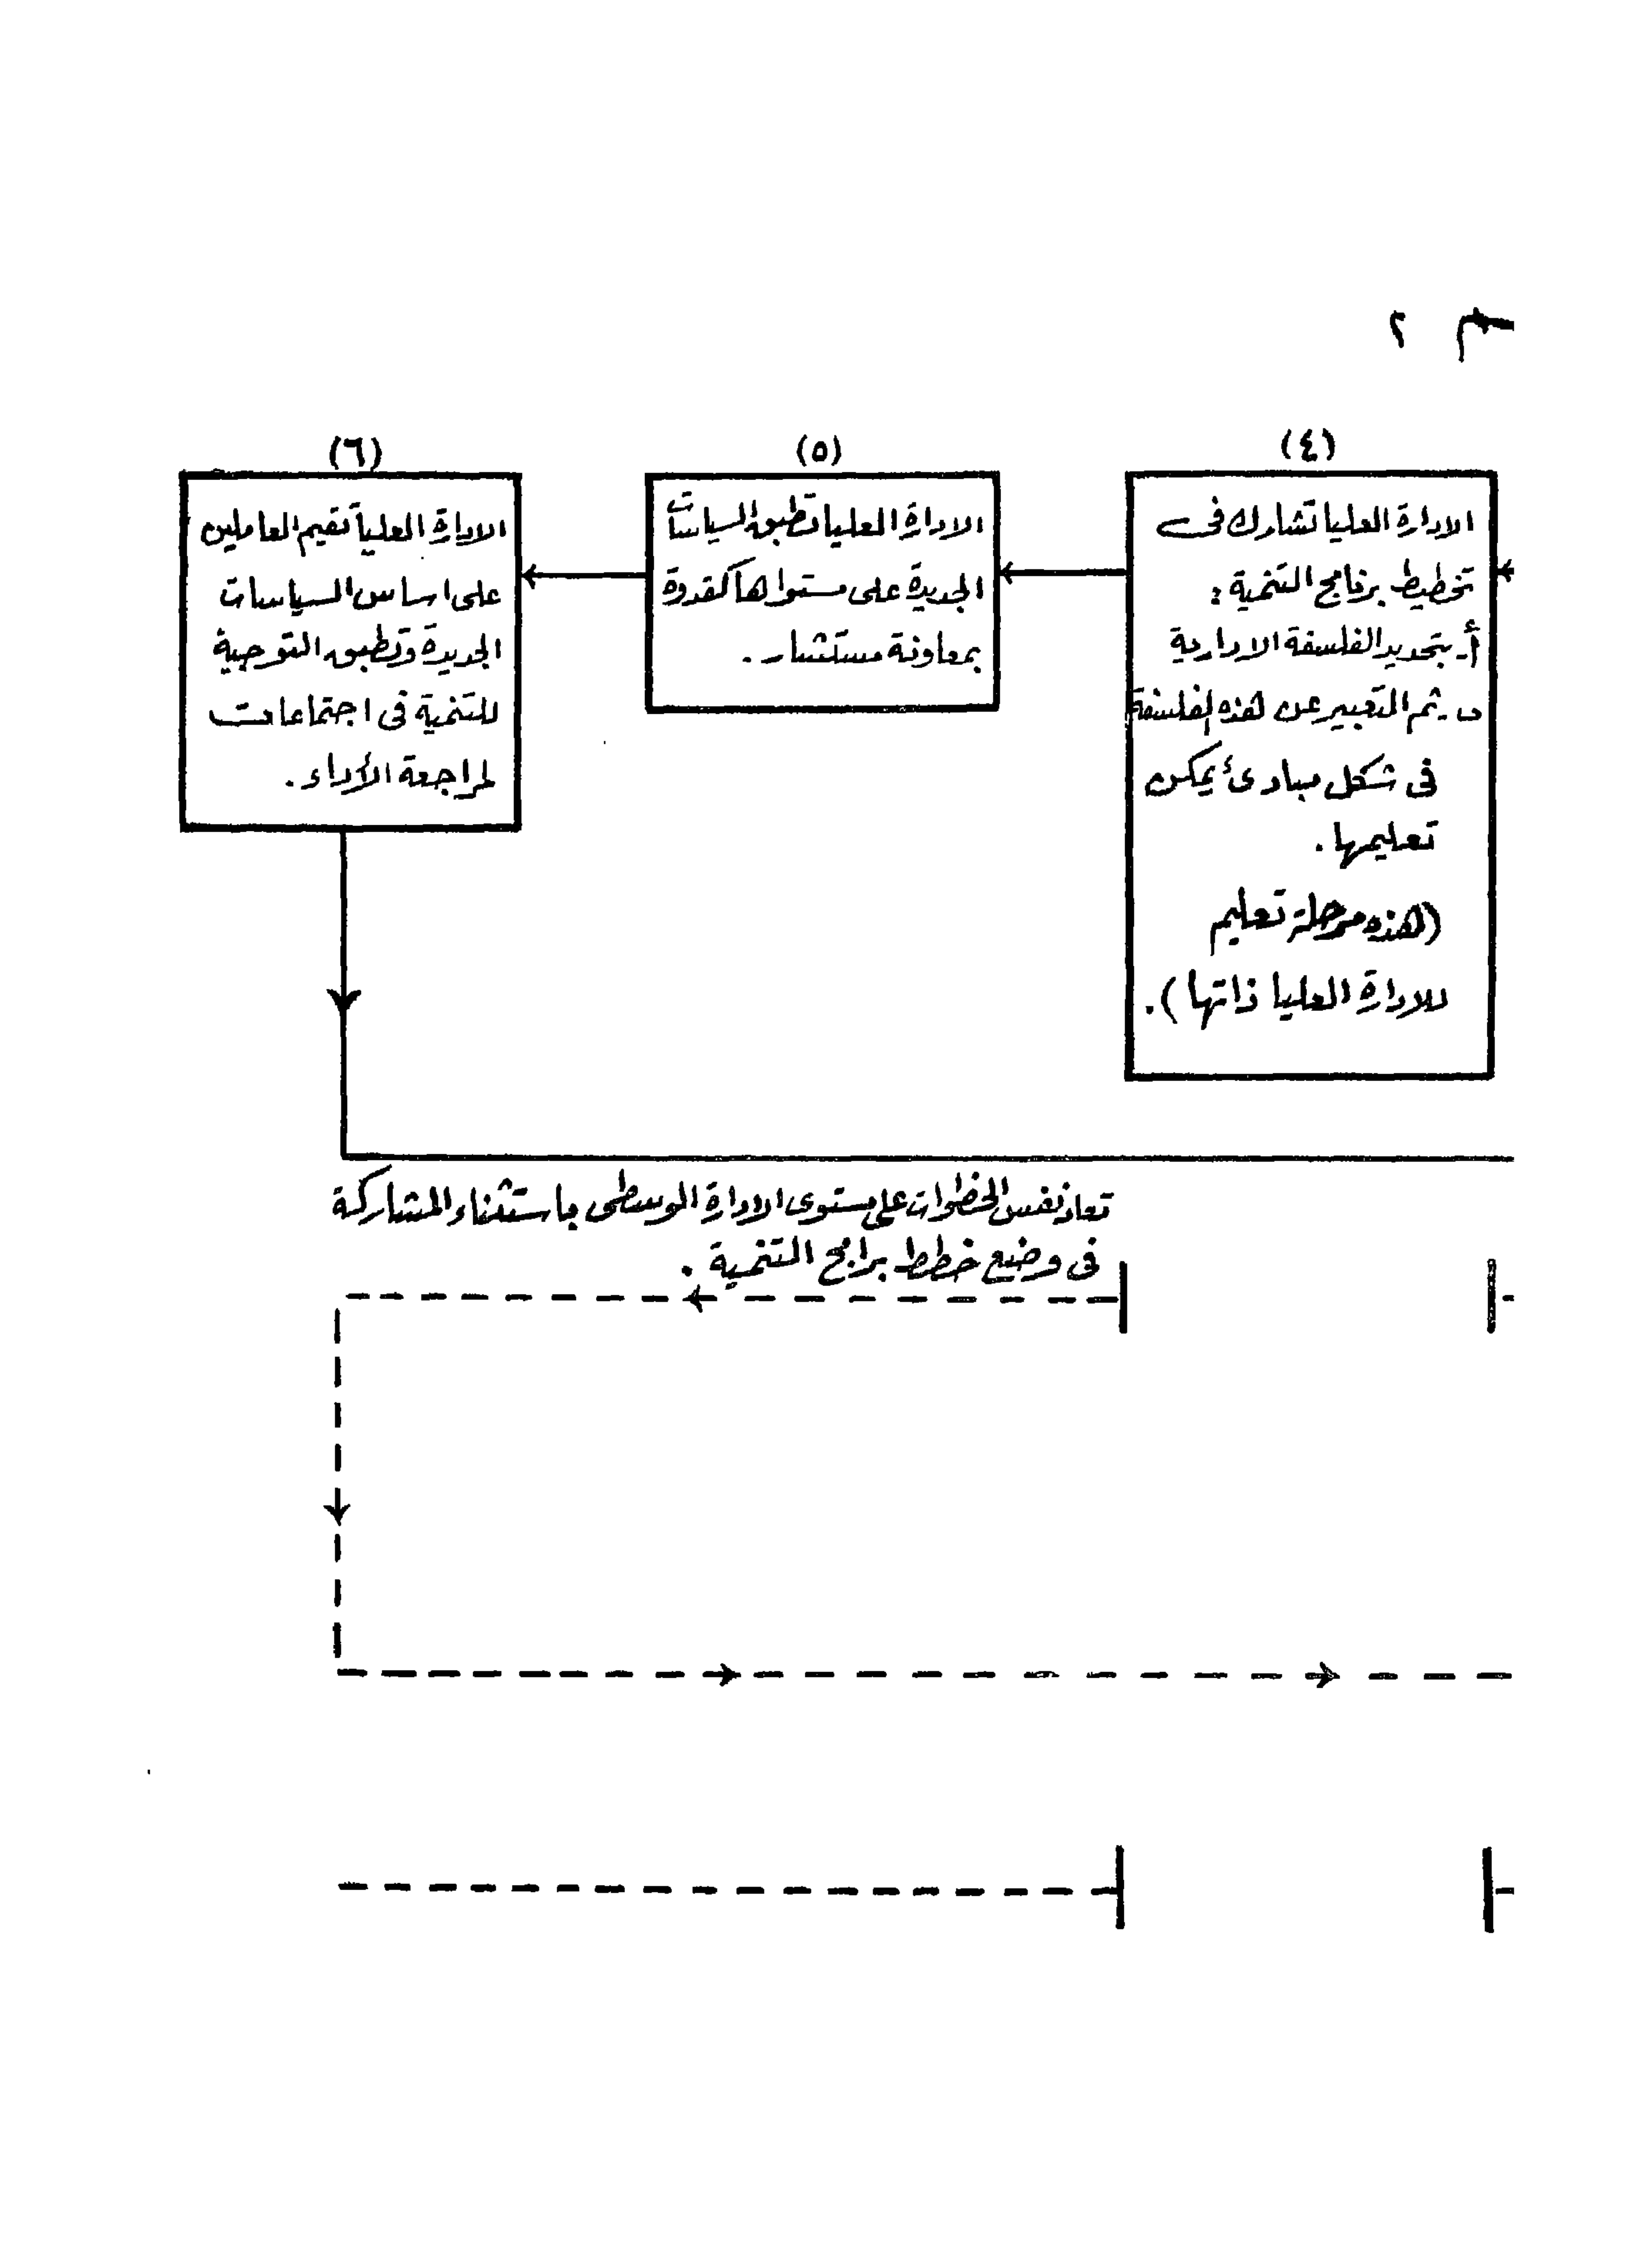 م ٢
(٤)
الادارة العليا تشارك فى
تخطيط برنامج التنمية :
أ- بتحديد الفلسفة الادارية
ب- ثم التعبير عن هذه الفلسفة
فى شكل مبادئ يمكن
تعليمها .
(هذه مرحلة تعليم
للادارة العليا ذاتها ) .
(٥)
الادارة العليا تطبق السياسات
الجديدة على مستواها كقدوة
بمعاونة مستشار .
(٦)
الادارة العليا تقيم العاملين
على اساس السياسات
الجديدة وتطبق التوجيه
للتنمية فى اجتماعات
لمراجعة الأداء .
تعاد نفس الخطوات على مستوى الادارة الوسطى باستثناء المشاركة
فى وضع خطط برامج التنمية .